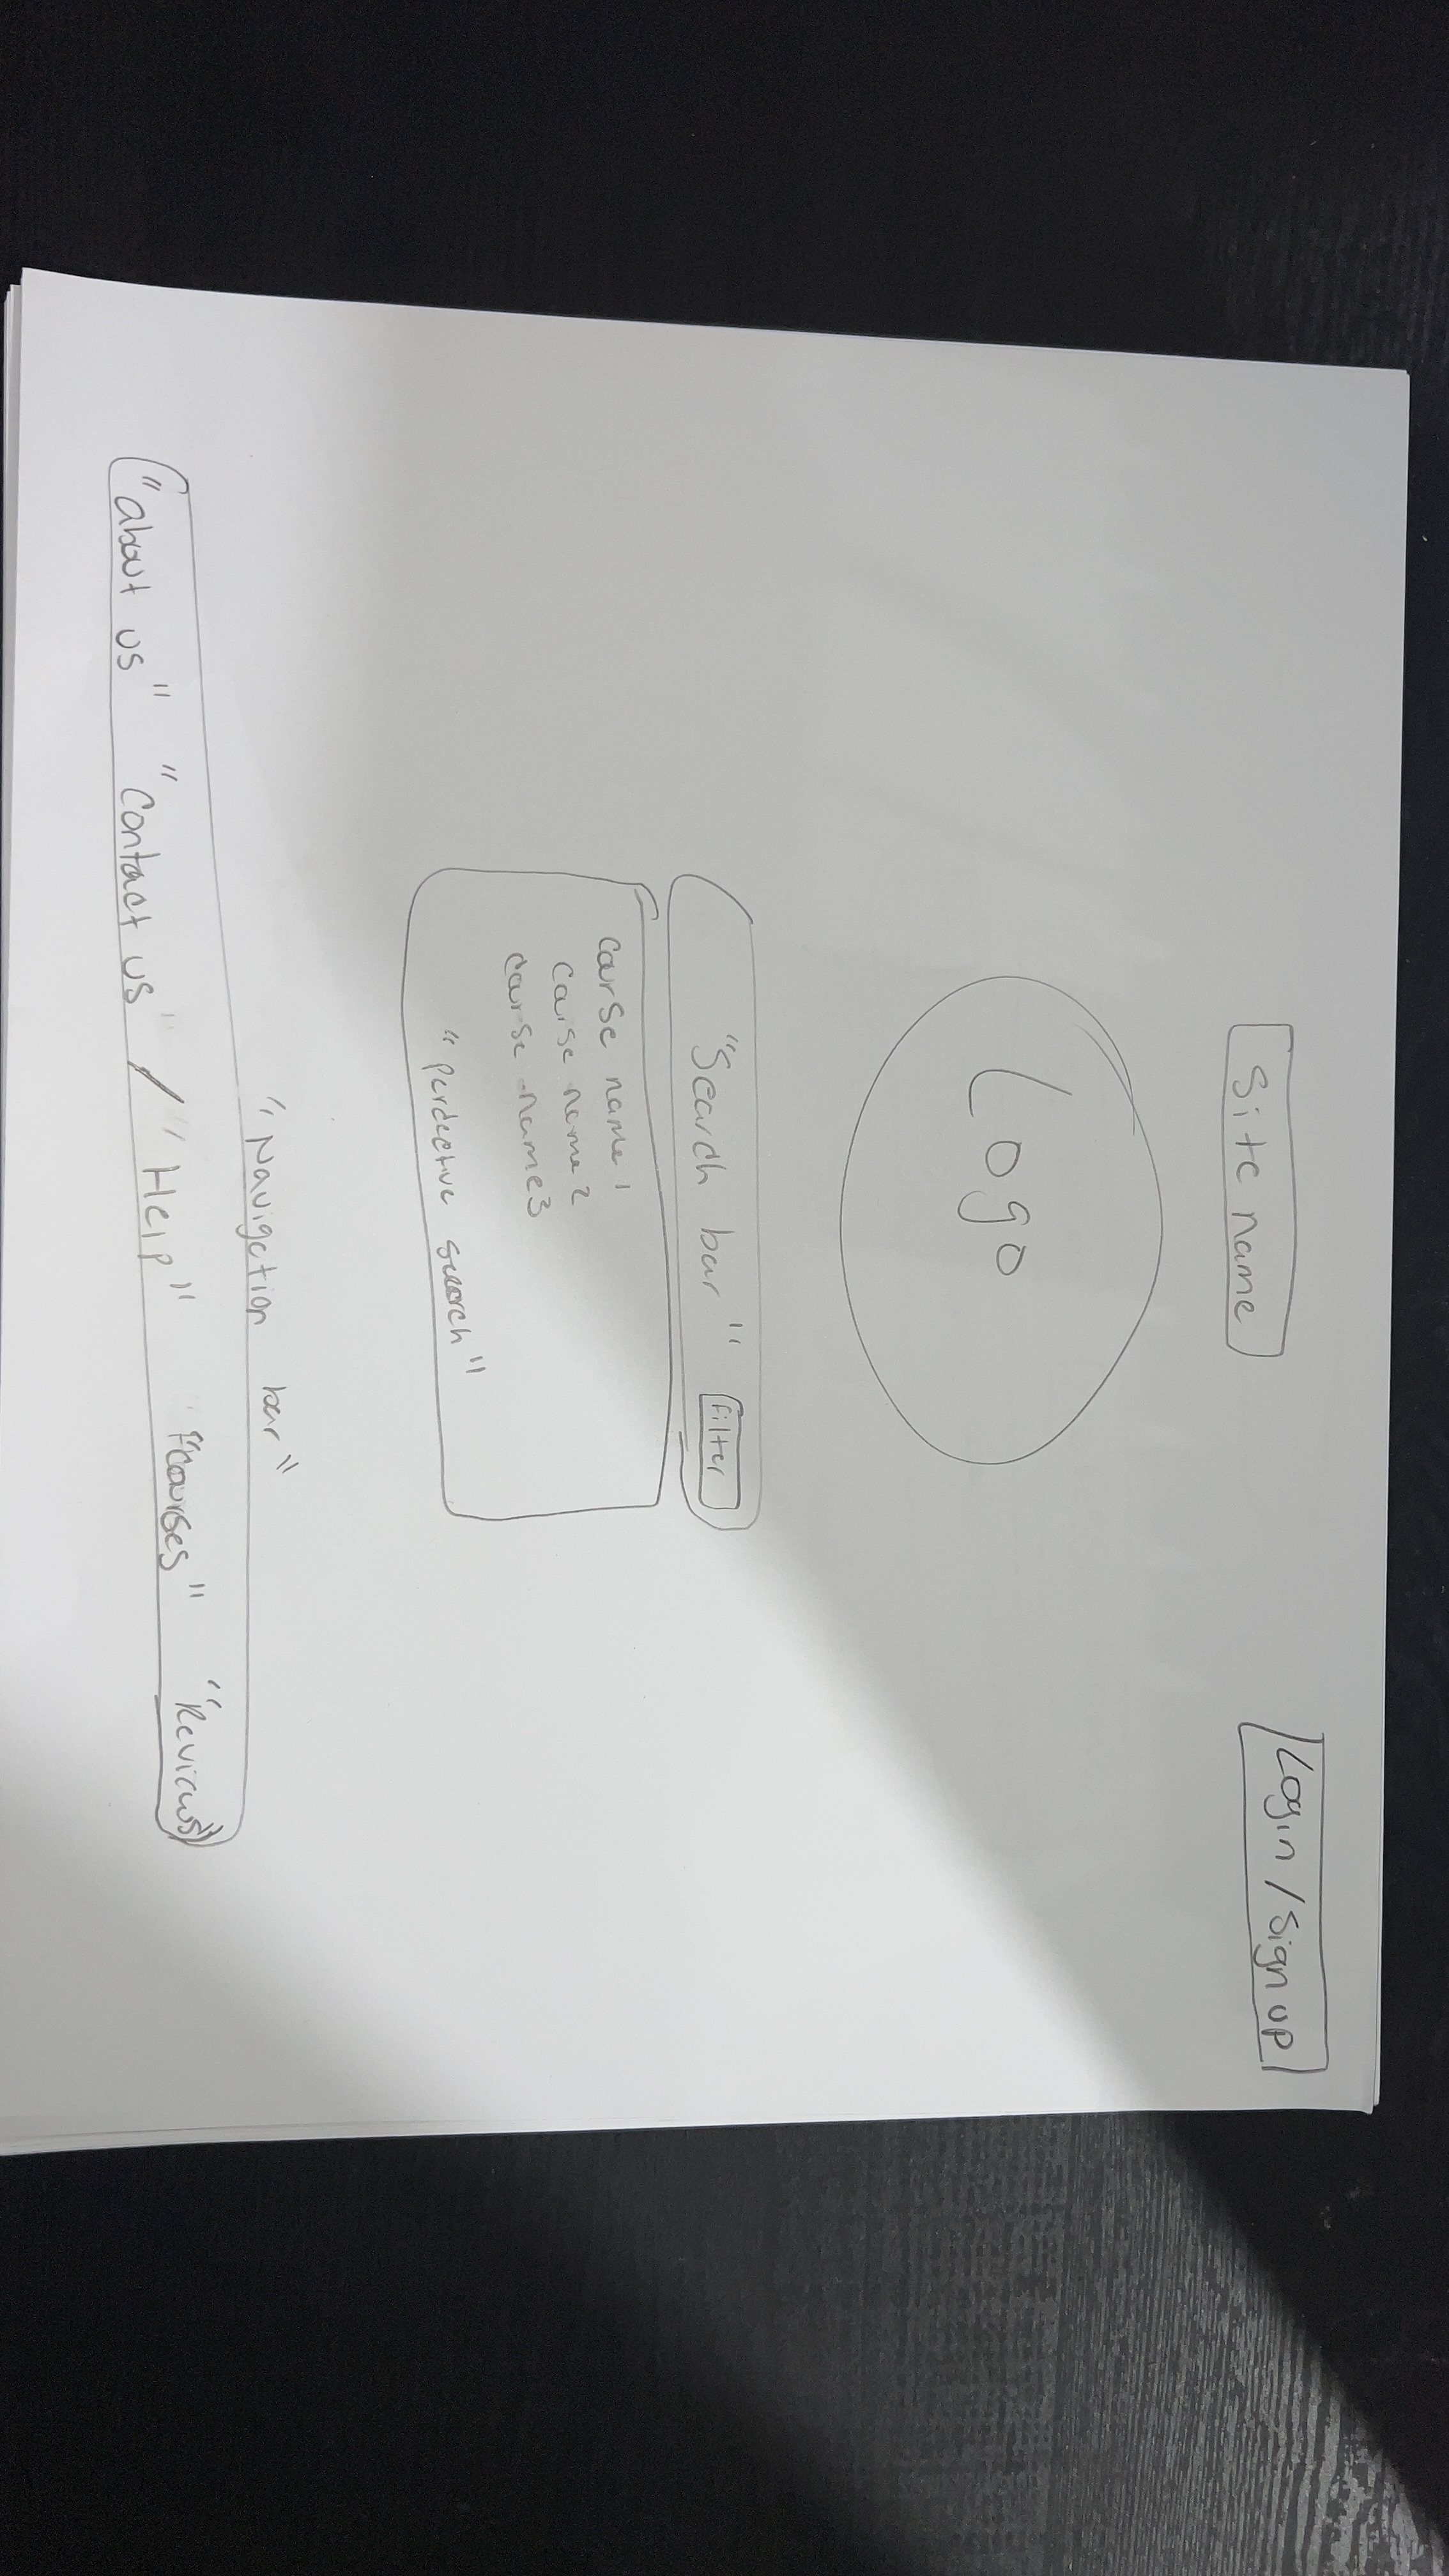 Site name
Login / Sign up
Logo
"Search bar" Filter
Course name 1
Course name 2
Course name 3
"Perdective search"
"Navigation bar"
"about us" "Contact us" / "Help" "Courses" "Reviews"